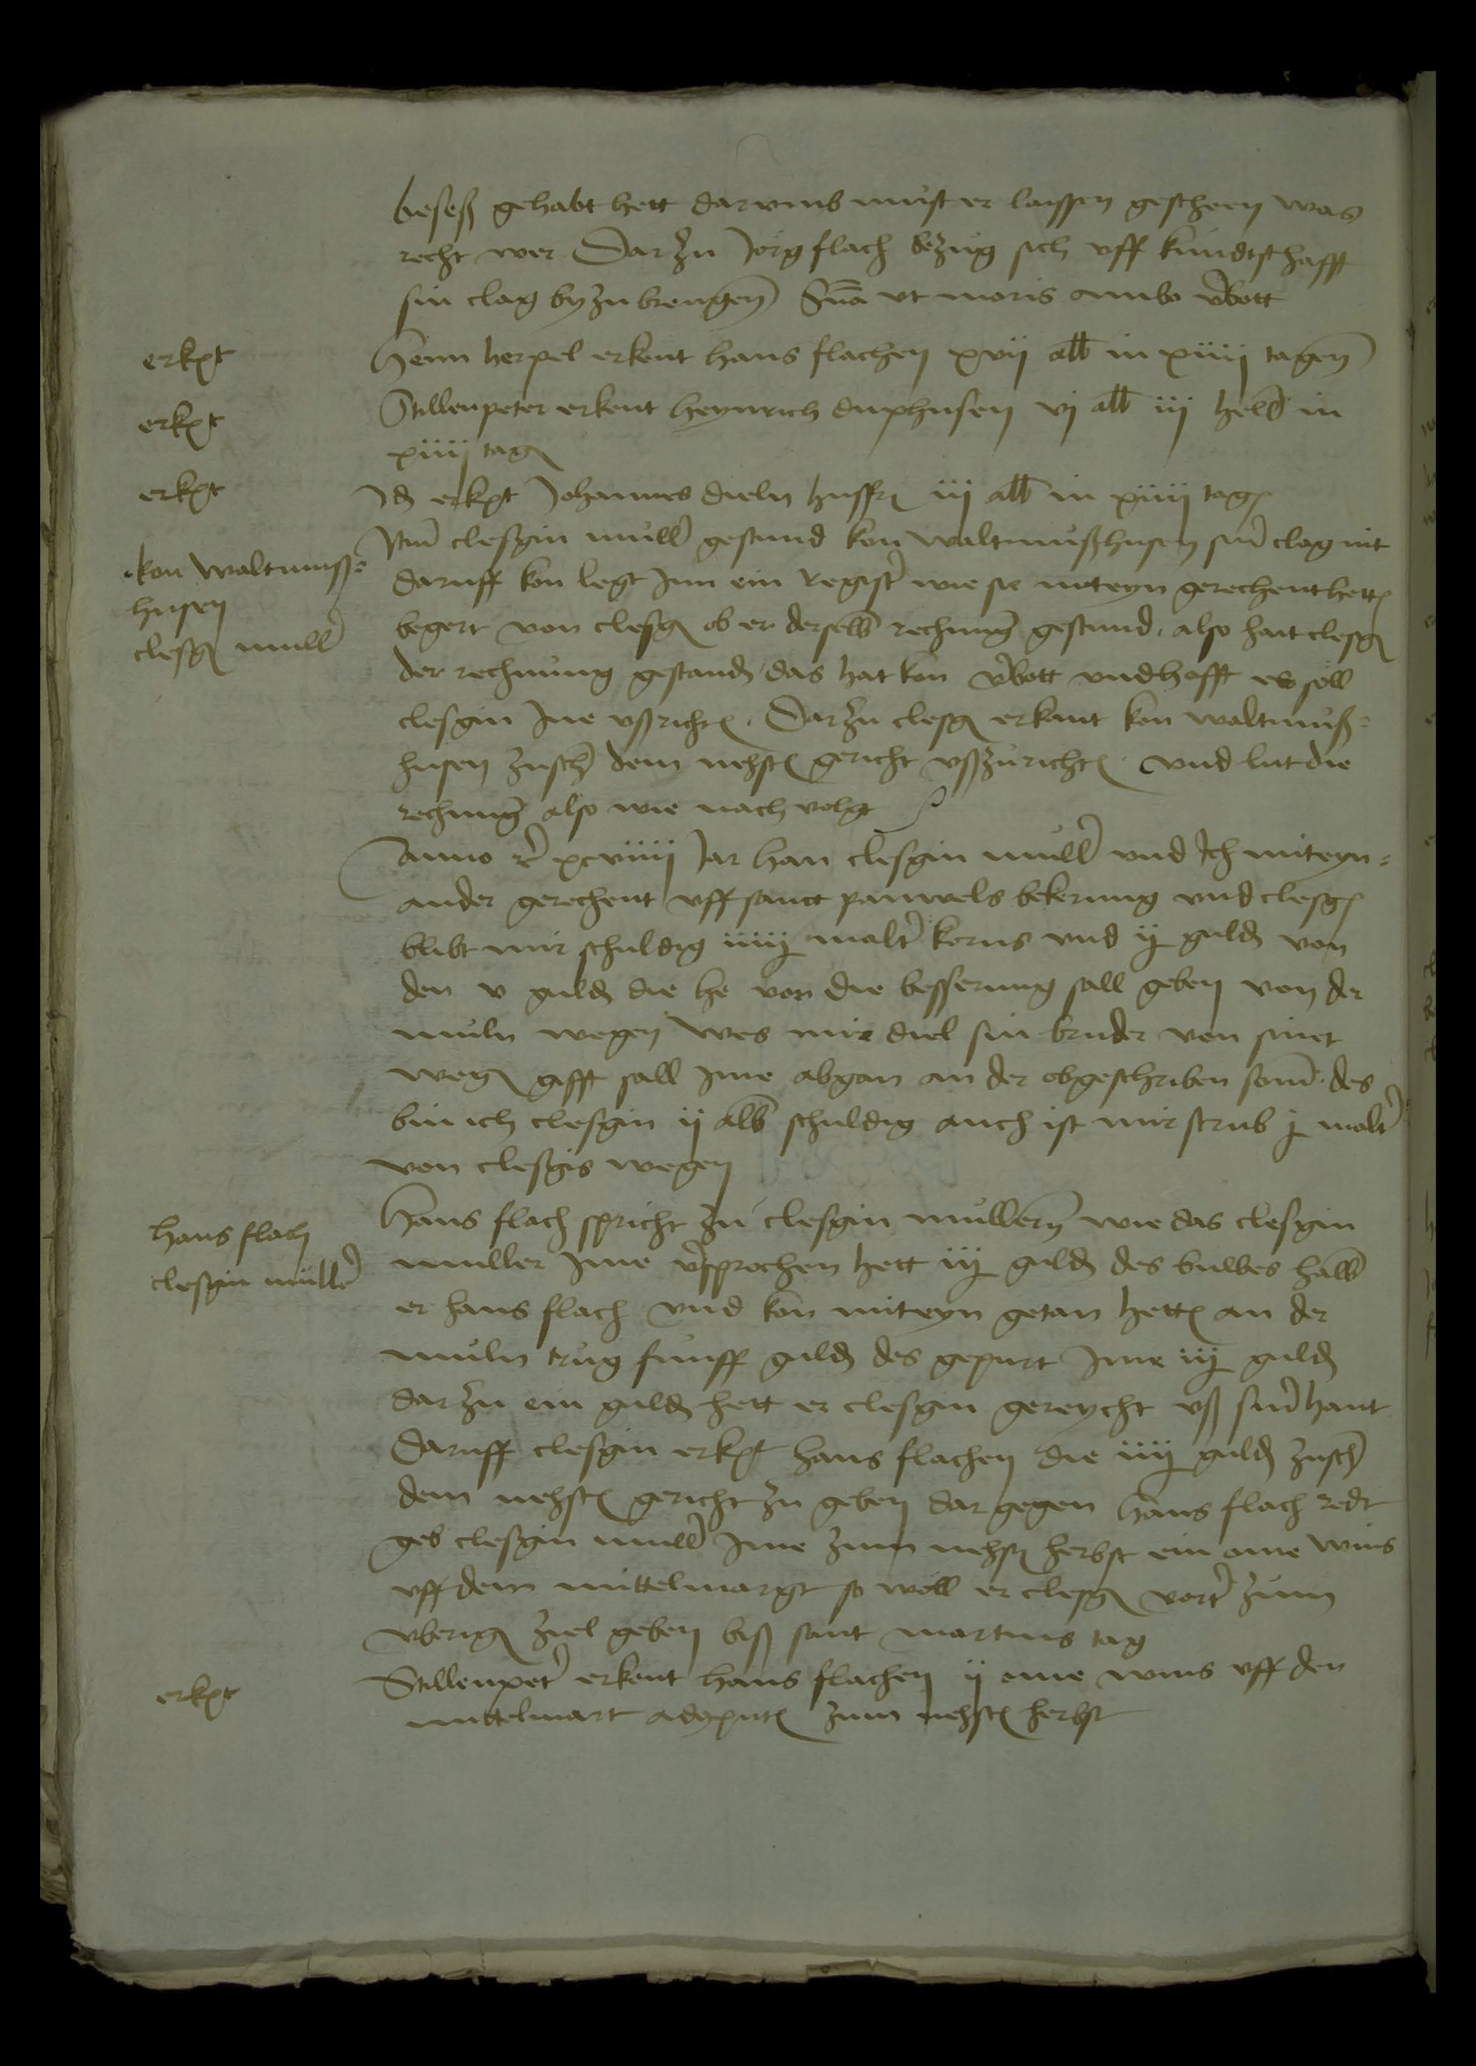 beseß gehabt hett darumb must er laissen gescheen was
recht wer Darzu Jorg flach bezug sich uff kundtschafft
sin clag byzubrengen Sn̄a ut moris ambo v̓bott
erkēt
Henn herpel erkent hans flachen xvij alb in xiiij tagen
erkēt
Stillenpeter erkent heynrich duphusen vj alb iij held in
xiiij tagē
erkēt
Jd̄ erkēt Johannes dieln huffē iij alb in xiiij tagē
kon waltmuß=
husen
clesgī mull̓
Jtm̄ clesgin mull̓ gestund kon waltmußhusen sin̓ clag nit
daruff kon legt Jnn ein Regist̓ wie sie miteyn gerechent hettē
begert von clesgī ob er derselb̄ rechnung gestund, also hait clesgī
der rechnung gestand̄ das hat kon v̓bott und hofft es soll
clesgin Jne ußrichtē. Darzu clesgī erkant kon waltmuß=
husen zusch̄ dem nehstē gericht ußzurichtē und lut die
rechnung also wie nach volgt
Anno r̓ xcviiij Jar han clesgin mull̓ und Jch miteyn=
ander gerechent uff sanct pauwels bekerung und clesgī
blibt mir schuldig iiij malt̓ korns und ij guld̄ von
den v guld̄ die he von die besserung sall geben von der
muln wegen was mir diel sin bruder von sinet
wegē gifft sall Jme abgan an der obgeschriben som̄ des
bin ich clesgin ij alb schuldig auch ist mir strub j malt̓
von clesgis wegen
hans flach
clesgin mull̓
Hans flach spricht zu clesgin mullern wie das clesgin
muller Jme v̓sprochen hett iij guld̄ des bulbes halb
er hans flach und kon miteyn getan hettē an der
muln trug funff guld̄ des gepurt Jme iij guld̄
darzu ein guld̄ hett er clesgin gereycht uß sin̓ hant
Daruff clesgin erkēt hans flachen die iiij guld̄ zusch̄
dem nehstē gericht zu geben dar gegen hans flach redt
geb clesgin mull̓ Jme zum nehstē herbst ein ome wins
uff dem mittelmargt so woll er clesgī vort̓ zum
uberigē ziel geben biß sant martins tag
erkēt
Stillenpet̓ erkent hans flachen ij ome wins uff den
mittelmart adxputē zum nehstē herbst